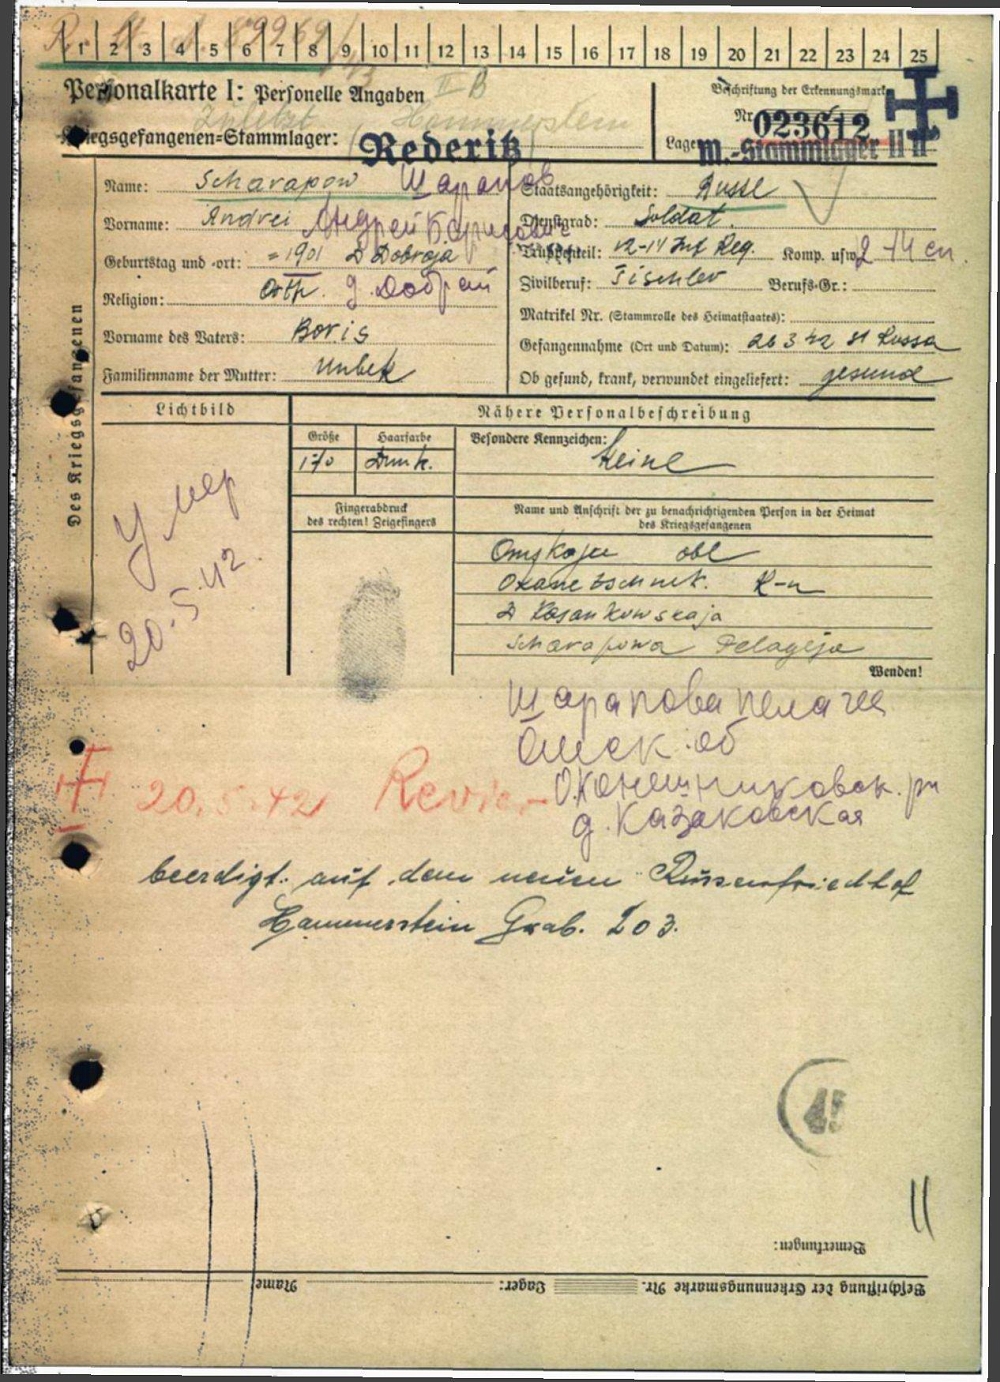 1 2 3 4 5 6 7 8 9 10 11 12 13 14 15 16 17 18 19 20 21 22 23 24 25
Personalkarte I: Personelle Angaben II B
Beschriftung der Erkennungsmarke
Zuletzt Hammerstein
Nr. 023612
Kriegsgefangenen-Stammlager: Rederitz
Lager: M.-Stammlager II H
Des Kriegsgefangenen
Name: Scharapow Шарапов
Staatsangehörigkeit: Russe
Vorname: Andrei Андрей Борисович
Dienstgrad: Soldat
Geburtstag und -ort: =1901 D Dobraja
Truppenteil: 12-14 Inf Reg. Komp. usw.: 2-14 сп.
Religion: Orth. д. Добрай
Zivilberuf: Tischler Berufs-Gr.:
Matrikel Nr. (Stammrolle des Heimatstaates):
Vorname des Vaters: Boris
Gefangennahme (Ort und Datum): 26 3 42 St Russa
Familienname der Mutter: Unbek
Ob gesund, krank, verwundet eingeliefert: gesund
Lichtbild
Nähere Personalbeschreibung
Größe Haarfarbe Besondere Kennzeichen:
170 Dunk. Keine
Fingerabdruck
des rechten! Zeigefingers
Name und Anschrift der zu benachrichtigenden Person in der Heimat
des Kriegsgefangenen
Умер
20.5.42.
Omskaja obl
R-n
D Kasankowskaja
Scharapowa Pelageja
Wenden!
Шарапова Пелагея
Омск. об
Оконешниковск. рн
д. Казаковская
20.5.42 Revier
beerdigt auf dem neuen Russenfriedhof
Hammerstein Grab. 203.
45
11
Bemerkungen:
Name Lager: Beschriftung der Erkennungsmarke Nr.